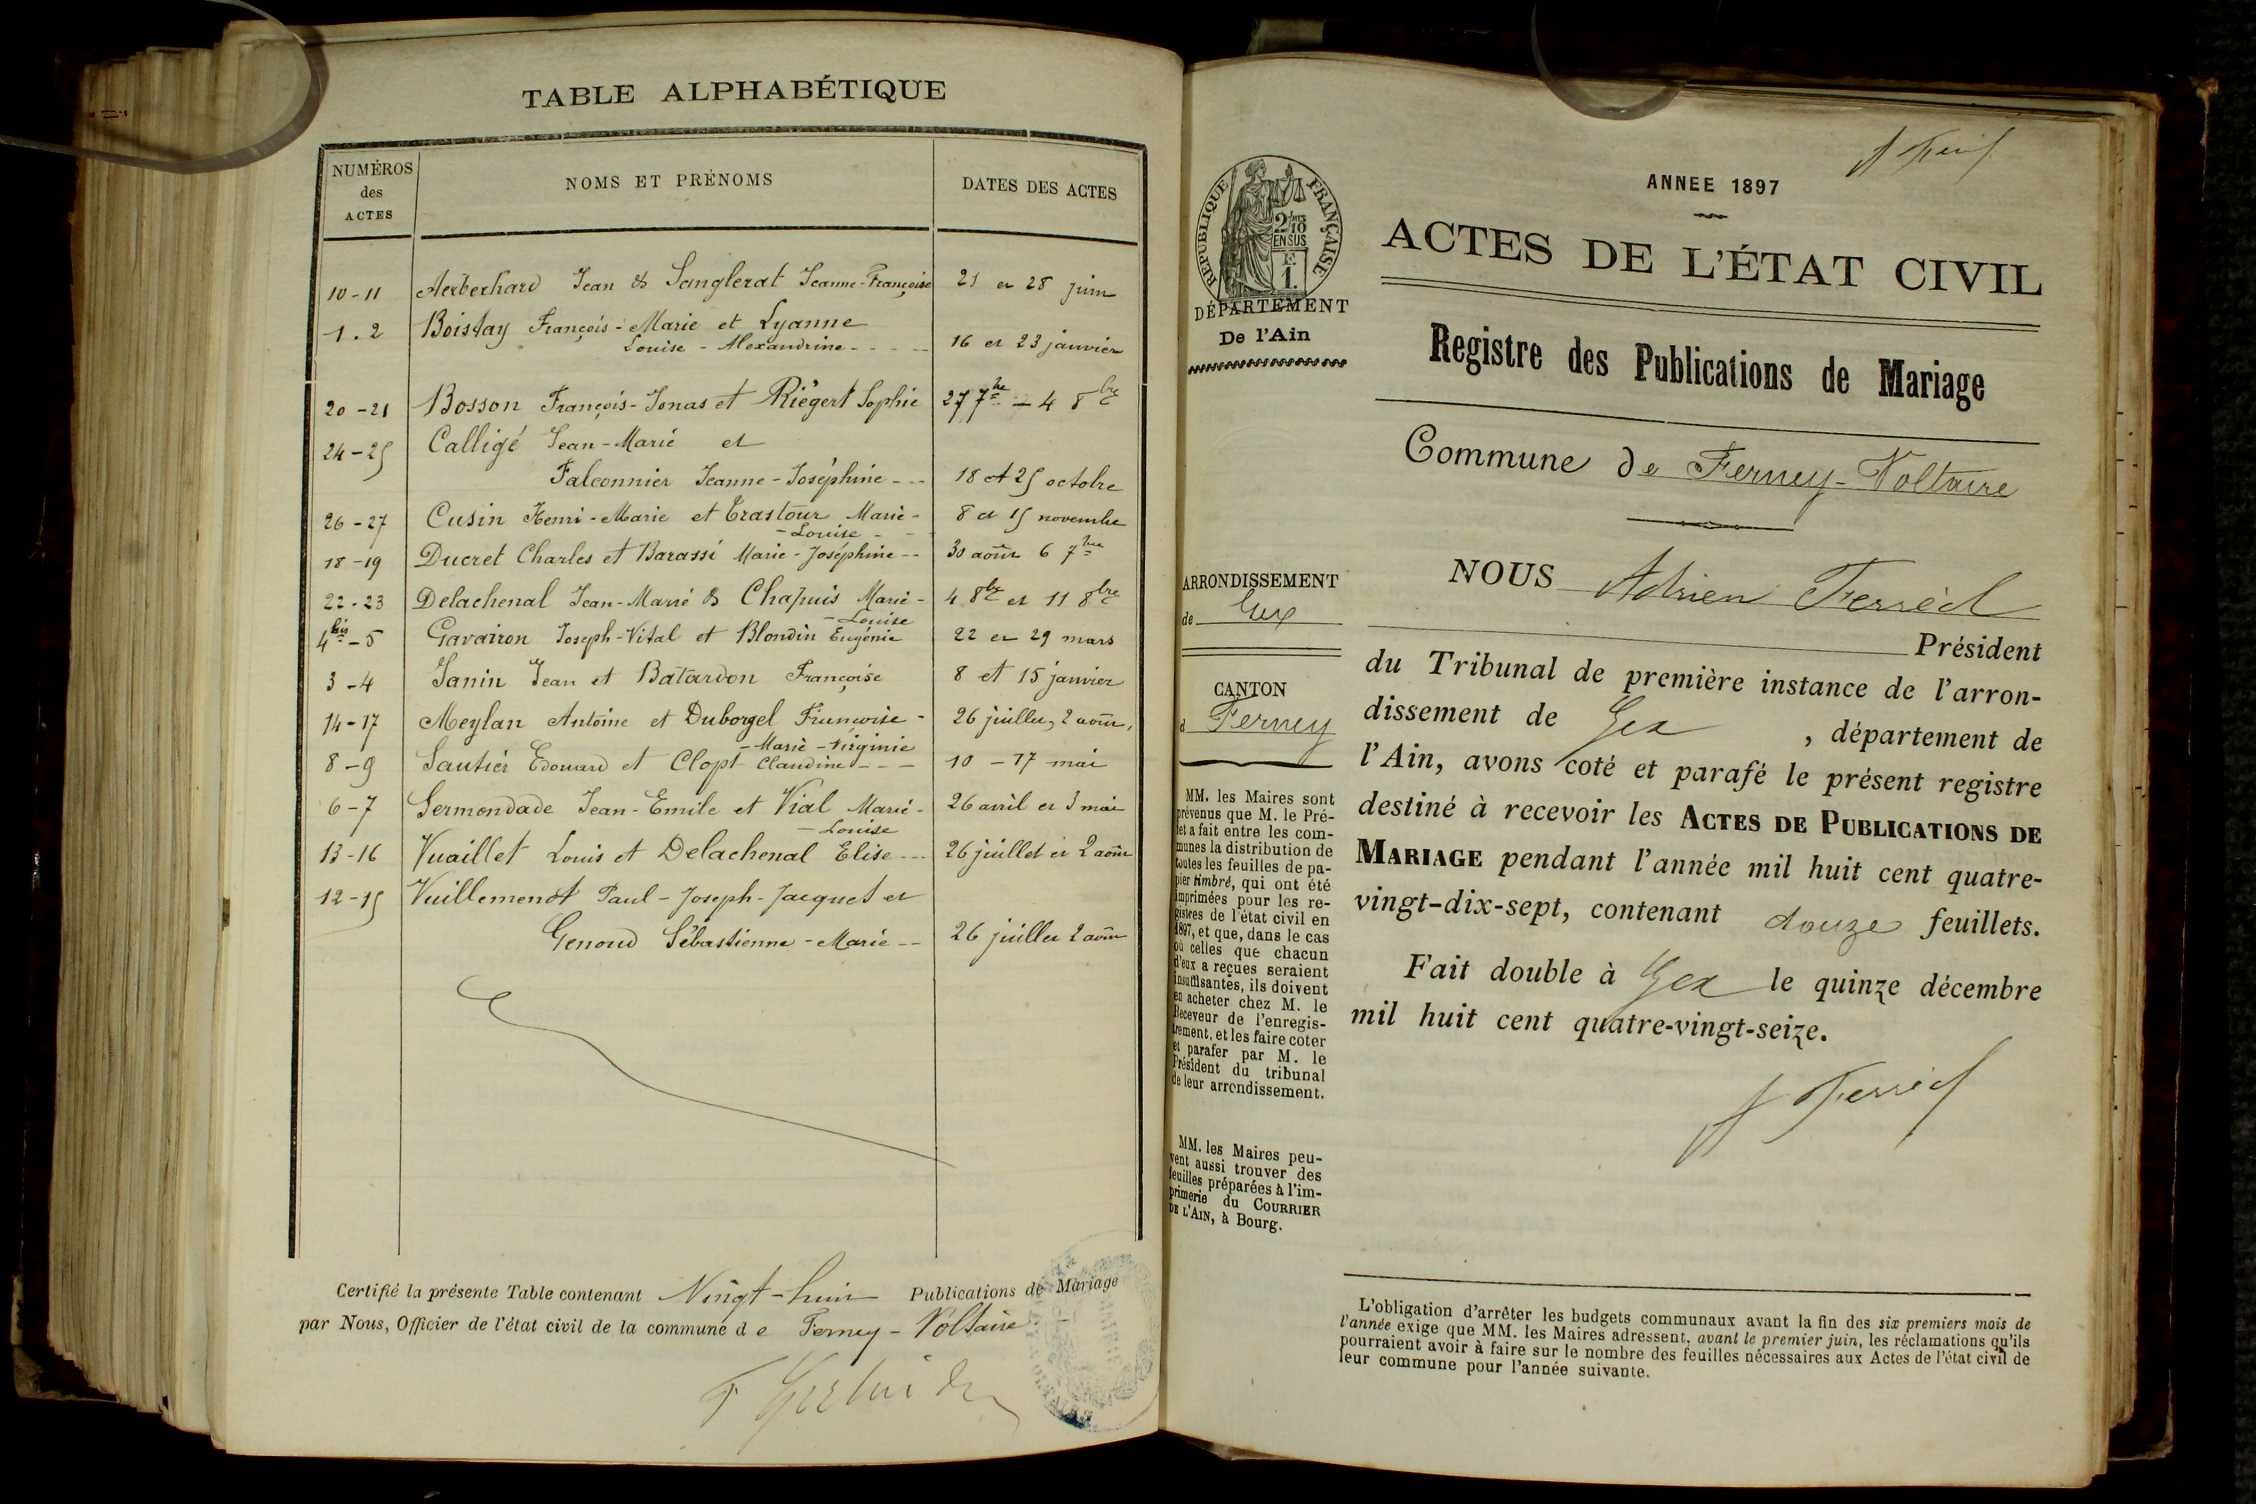 TABLE ALPHABÉTIQUE
NUMÉROS
des
ACTES
NOMS ET PRÉNOMS
DATES DES ACTES
10-11 Aerberhard Jean & Sanglerat Jeanne-Françoise 21 et 28 juin
1.2 Boistay François-Marie et Lyanne
Louise-Alexandrine 16 et 23 janvier
20-21 Bosson François-Jonas et Riégert Sophie 27 7bre - 4 8bre
24-25 Calligé Jean-Marie et
Falconnier Jeanne-Joséphine 18 et 25 octobre
26-27 Cusin Henri-Marie et Erastour Marie- 8 et 15 novembre
-Louise
18-19 Ducret Charles et Barassi Marie-Joséphine 30 août 6 7bre
22-23 Delachenal Jean-Marie & Chapuis Marie- 4 8bre et 11 8bre
-Louise
4bis-5 Gavairon Joseph-Vital et Blondin Eugénie 22 et 29 mars
3-4 Janin Jean et Batardon Françoise 8 et 15 janvier
14-17 Meylan Antoine et Duborgel Françoise- 26 juillet, 2 août
-Marie-Virginie
8-9 Sautier Edouard et Clopt Claudine 10-17 mai
6-7 Sermondade Jean-Emile et Vial Marie- 26 avril et 3 mai
-Louise
13-16 Vuaillet Louis et Delachenal Elise 26 juillet et 2 août
12-15 Vuillemenot Paul-Joseph-Jacquet et
Genoud Sébastienne-Marie 26 juillet 2 août
Certifié la présente Table contenant Vingt-huit Publications de Mariage
par Nous, Officier de l'état civil de la commune de Ferney-Voltaire
RÉPUBLIQUE FRANÇAISE
2/10
EN SUS
F.
1.
DÉPARTEMENT
De l'Ain
ARRONDISSEMENT
de Gex
CANTON
d Ferney
MM. les Maires sont
prévenus que M. le Pré-
fet a fait entre les com-
munes la distribution de
toutes les feuilles de pa-
pier timbré, qui ont été
imprimées pour les re-
gistres de l'état civil en
1897, et que, dans le cas
où celles que chacun
d'eux a reçues seraient
insuffisantes, ils doivent
en acheter chez M. le
Receveur de l'enregis-
trement, et les faire coter
et parafer par M. le
Président du tribunal
de leur arrondissement.
MM. les Maires peu-
vent aussi trouver des
feuilles préparées à l'im-
primerie du COURRIER
DE L'AIN, à Bourg.
ANNEE 1897
ACTES DE L'ÉTAT CIVIL
Registre des Publications de Mariage
Commune de Ferney-Voltaire
NOUS Adrien Ferréol
Président
du Tribunal de première instance de l'arron-
dissement de Gex , département de
l'Ain, avons coté et parafé le présent registre
destiné à recevoir les ACTES DE PUBLICATIONS DE
MARIAGE pendant l'année mil huit cent quatre-
vingt-dix-sept, contenant douze feuillets.
Fait double à Gex le quinze décembre
mil huit cent quatre-vingt-seize.
A Ferréol
L'obligation d'arrêter les budgets communaux avant la fin des six premiers mois de
l'année exige que MM. les Maires adressent, avant le premier juin, les réclamations qu'ils
pourraient avoir à faire sur le nombre des feuilles nécessaires aux Actes de l'état civil de
leur commune pour l'année suivante.